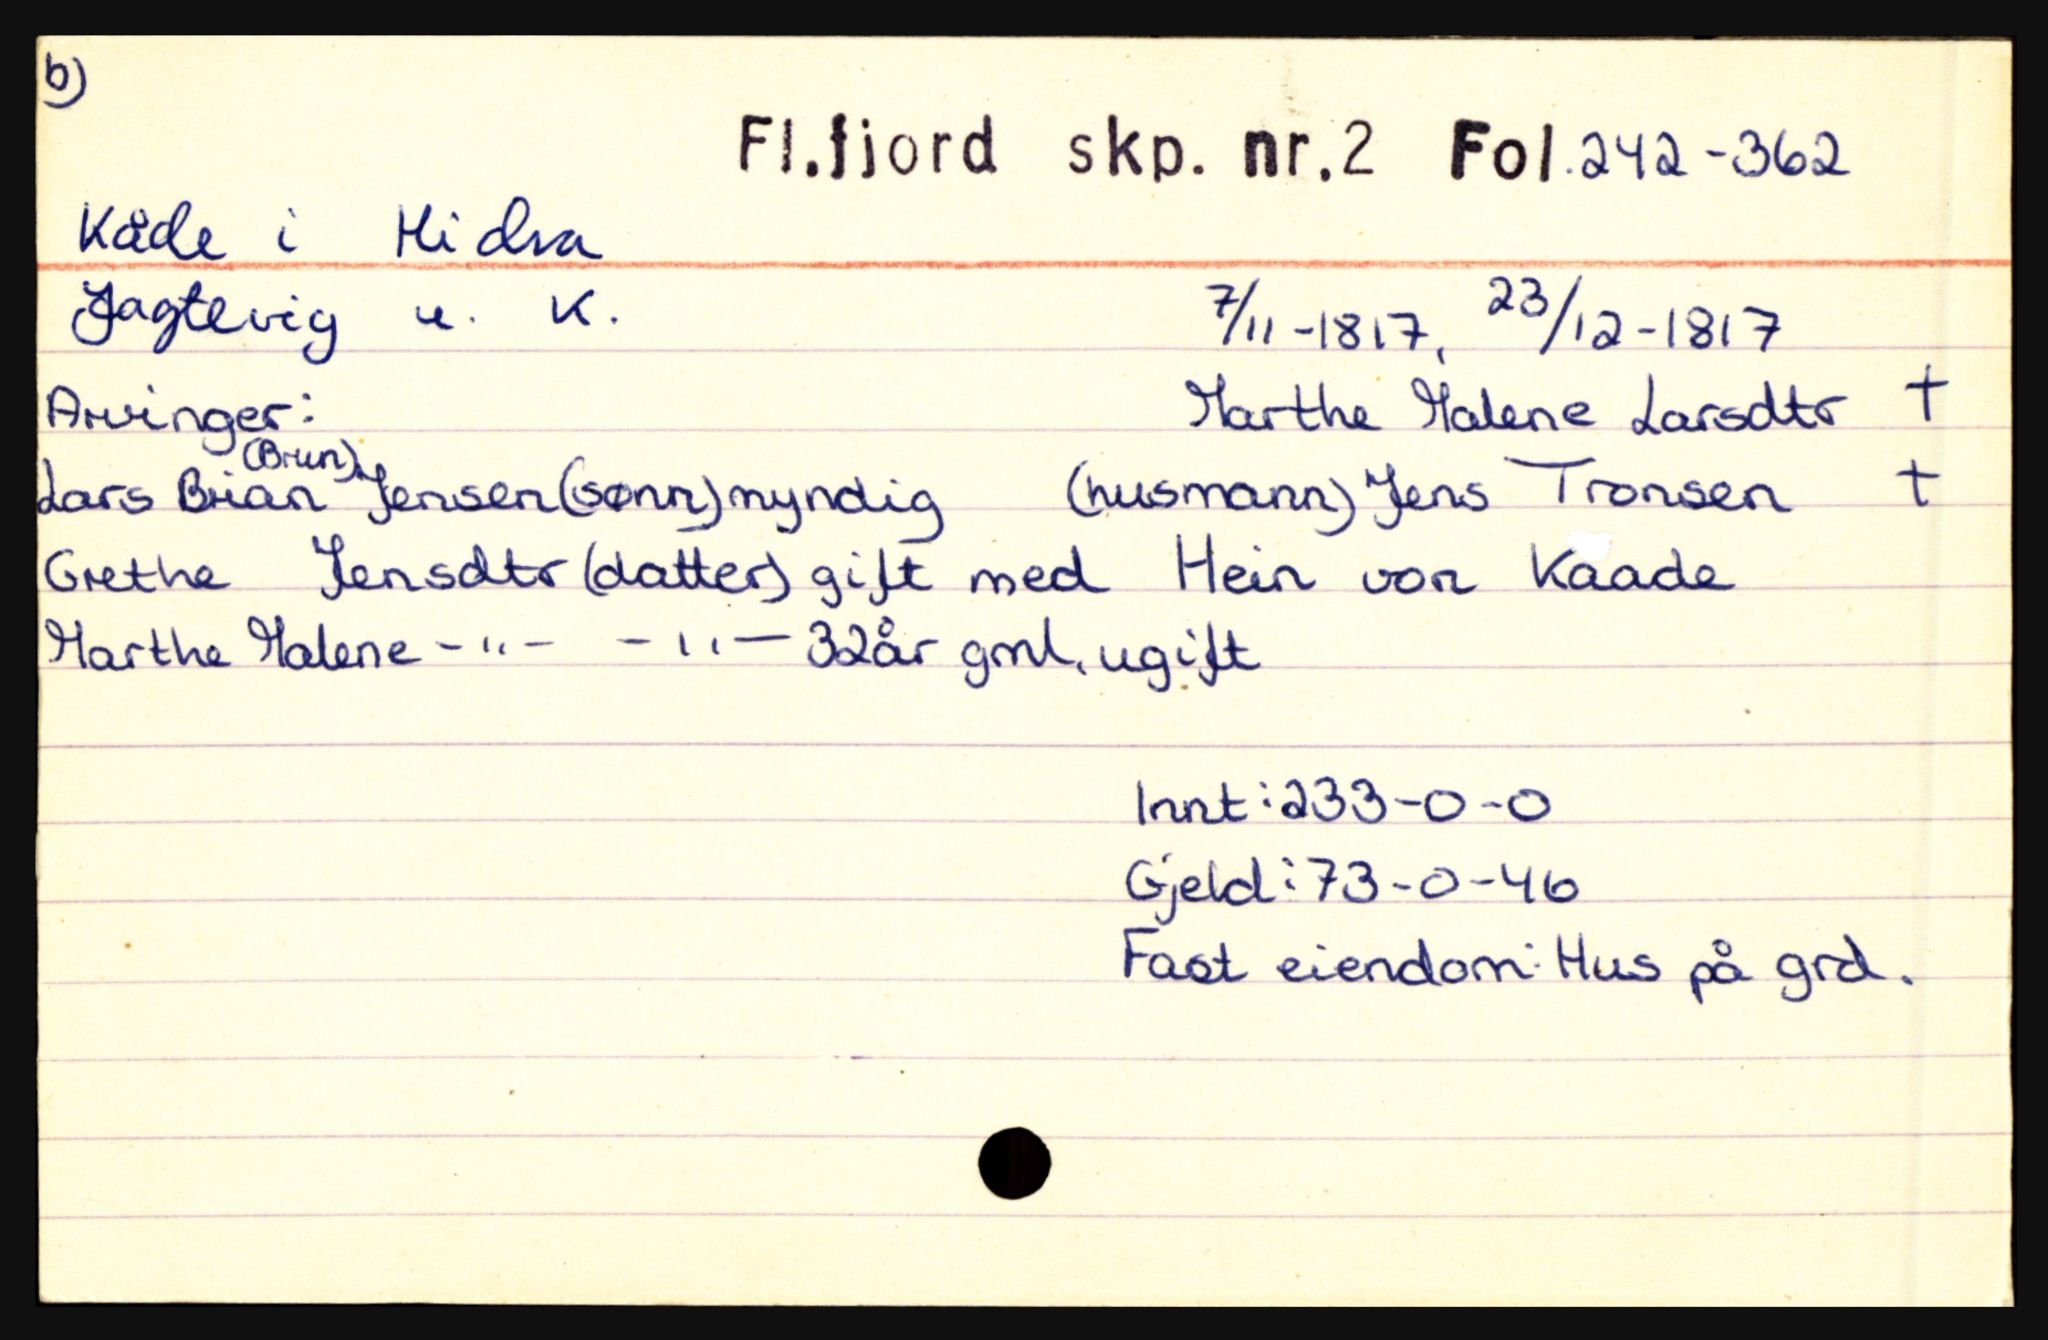 b)
Fl.fjord skp. nr.2 Fol.242-362
Kåde i Hidra
Jagtevig u. K. 7/11-1817, 23/12-1817
Arvinger: Marthe Malene Larsdtr †
Lars Brian (Brun) Jensen (sønn) myndig (husmann) Jens Tronsen †
Grethe Jensdtr (datter) gift med Hein von Kaade
Marthe Malene -"- -"- 32år gml. ugift
Innt: 233-0-0
Gjeld: 73-0-46
Fast eiendom: Hus på grd.